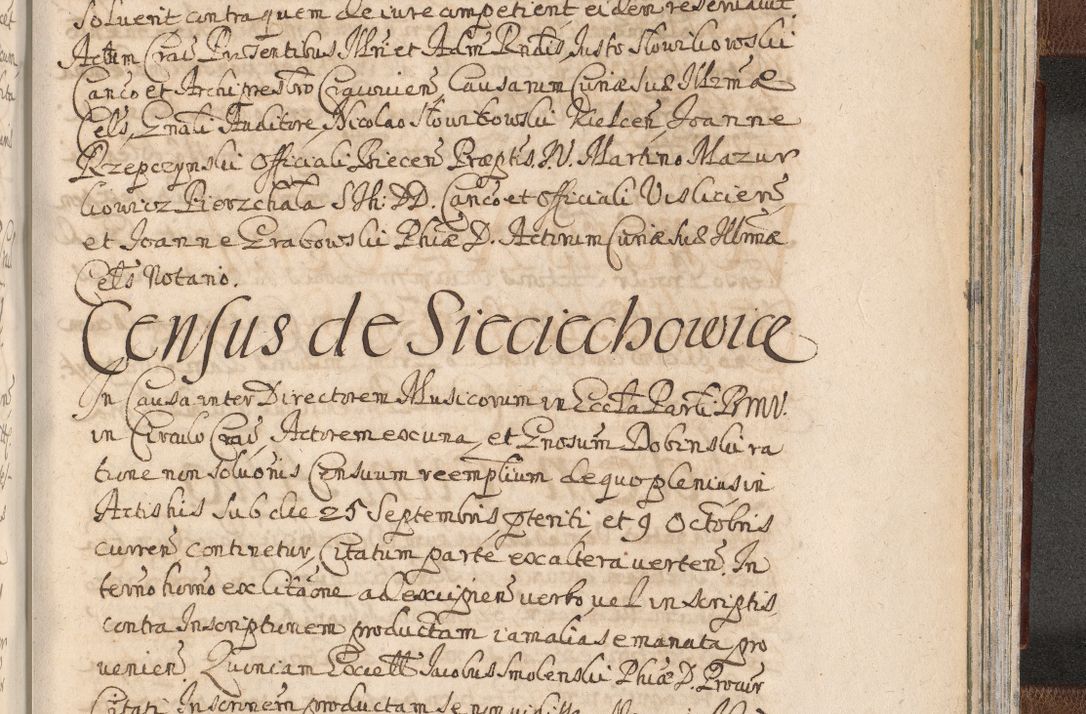 Soluerit contra quem de iure competient eidem reseruauit
Actum Crac Præsentibus Illri et Adm Rndis, Justo Słowikowski
Canco et Archipresbro Cracovien, Causarum Curiæ suæ Illrmæ
Cels, Gnali Auditore, Nicolao Słowikowski Kielcen, Joanne
Rzepczynski Officiali Biecen Præptis. N. Martino Mazur
kiowicz Pierzchała S Th: DD. Canco et Officiali Visliciens
et Joanne Grabowski Phiæ D. Actorum Curiæ suæ Illmæ
Cels Notario.
Census de Sieciechowice
In Causa inter Directorem Musicorum in Eccla Parti: BMV.
in Circulo Crac Actorem ex una, et Gnosum Dobinski ra
tione non solutionis Censuum reemptium de quo plenius in
Actis his sub die 25 Septembris pteriti et 9 Octobris
curren continetur, Citatum parte ex altera verten. In
termo horno ex citaone ad excipien verbo vel in scriptis
contra Inscriptionem productam iam alias emanata pro
venien. Quoniam Excell Jacobus Smolenski Phiæ D. Procur
Citati Inscrionem productam se non